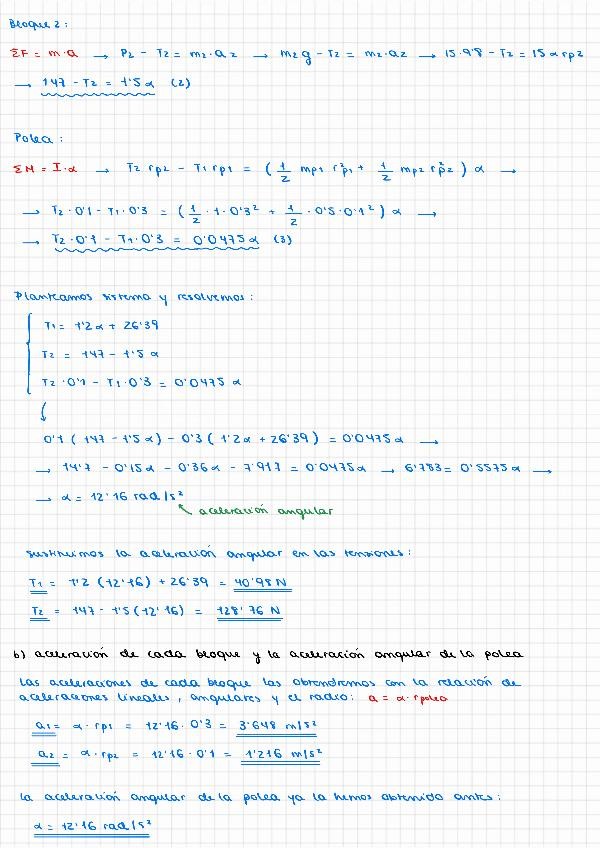 Bloque 2:
ΣF = m·a → P2 - T2 = m2·a2 → m2g - T2 = m2·a2 → 15·9'8 - T2 = 15 α rp2
→ 147 - T2 = 1'5 α (2)
Polea:
ΣM = I·α → T2 rp2 - T1 rp1 = (1/2 mp1 r²p1 + 1/2 mp2 r²p2) α →
→ T2·0'1 - T1·0'3 = (1/2·1·0'3² + 1/2·0'5·0'1²) α →
→ T2·0'1 - T1·0'3 = 0'0475 α (3)
Planteamos sistema y resolvemos:
T1 = 1'2 α + 26'39
T2 = 147 - 1'5 α
T2·0'1 - T1·0'3 = 0'0475 α
0'1 (147 - 1'5 α) - 0'3 (1'2 α + 26'39) = 0'0475 α →
→ 14'7 - 0'15 α - 0'36 α - 7'917 = 0'0475 α → 6'783 = 0'5575 α →
→ α = 12'16 rad/s²
aceleración angular
Sustituimos la aceleración angular en las tensiones:
T1 = 1'2 (12'16) + 26'39 = 40'98 N
T2 = 147 - 1'5 (12'16) = 128'76 N
b) aceleración de cada bloque y la aceleración angular de la polea
Las aceleraciones de cada bloque las obtendremos con la relación de
aceleraciones lineales, angulares y el radio: a = α·rpolea
a1 = α·rp1 = 12'16·0'3 = 3'648 m/s²
a2 = α·rp2 = 12'16·0'1 = 1'216 m/s²
La aceleración angular de la polea ya la hemos obtenido antes:
α = 12'16 rad/s²